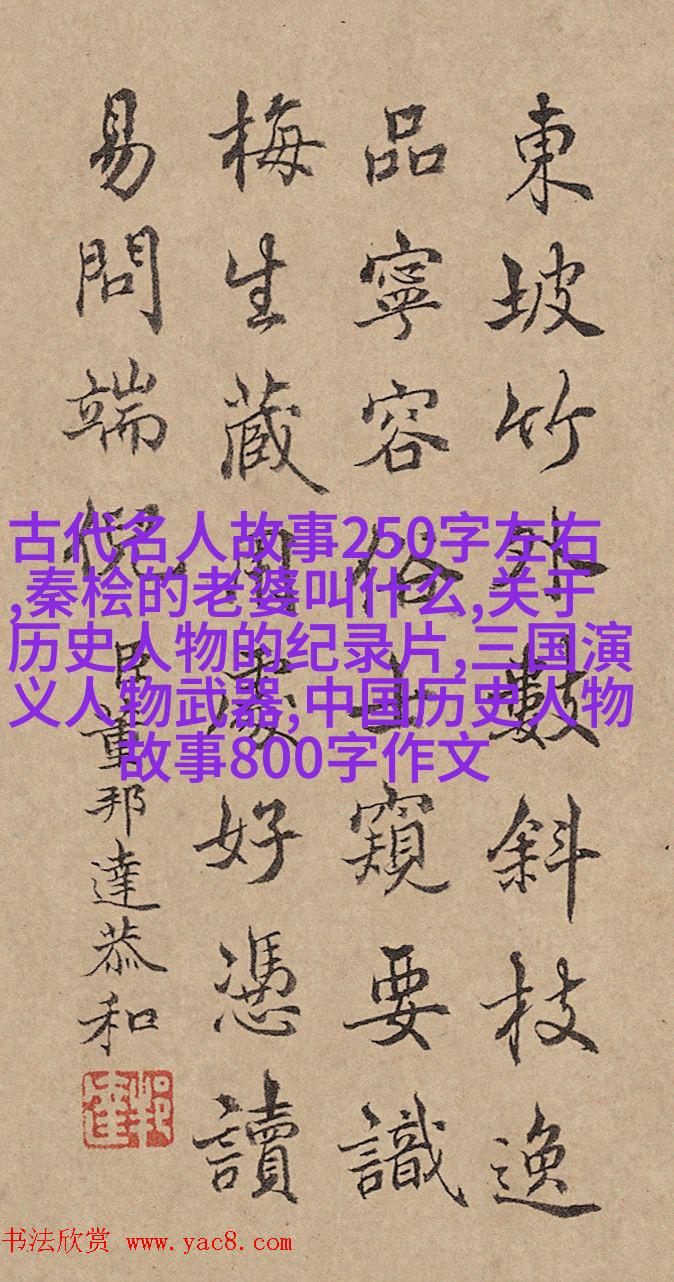 東坡竹外數斜枝逸
品寧容俗士窺要識
梅生藏用處好憑讀
易問端倪 臣董邦達恭和
古代名人故事250字左右
,秦桧的老婆叫什么,关于
历史人物的纪录片,三国演
义人物武器,中国历史人物
故事800字作文
书法欣赏 www.yac8.com